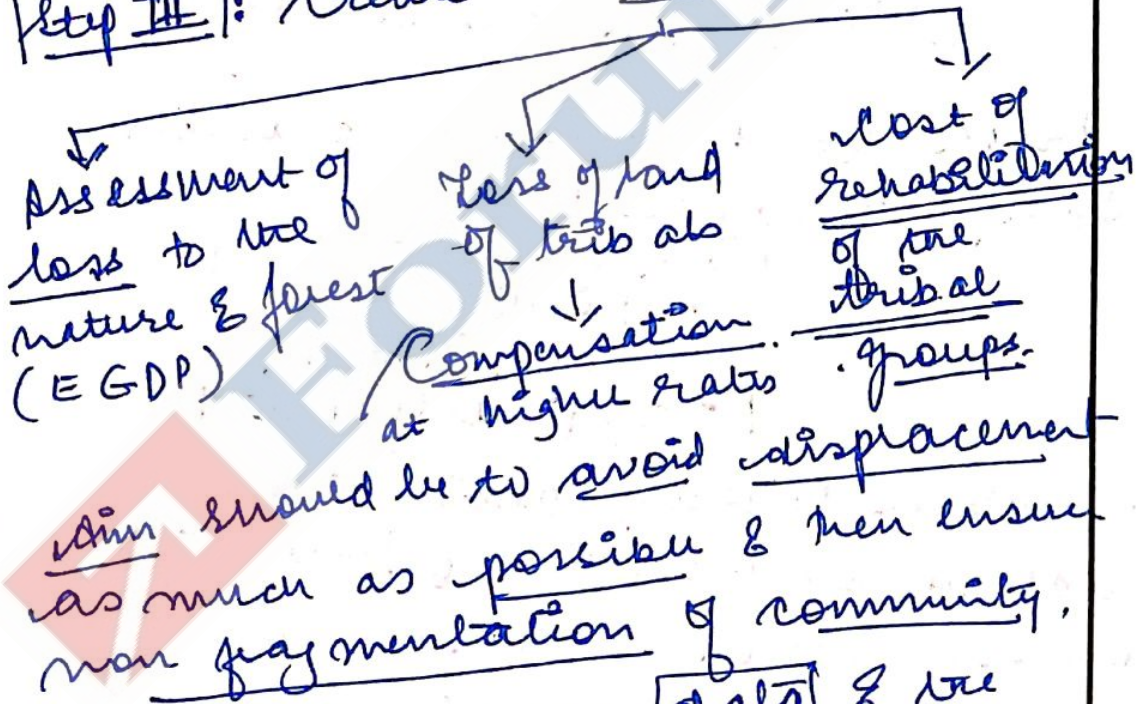 Step III :
Assessment of
loss to the
nature & forest
(EGDP)
Loss of land
of tribals
Compensation
at higher rates
Cost of
rehabilitation
of the
tribal
groups.
Aim should be to avoid displacement
as much as possible & then ensure
non fragmentation of community.
& the
Forum